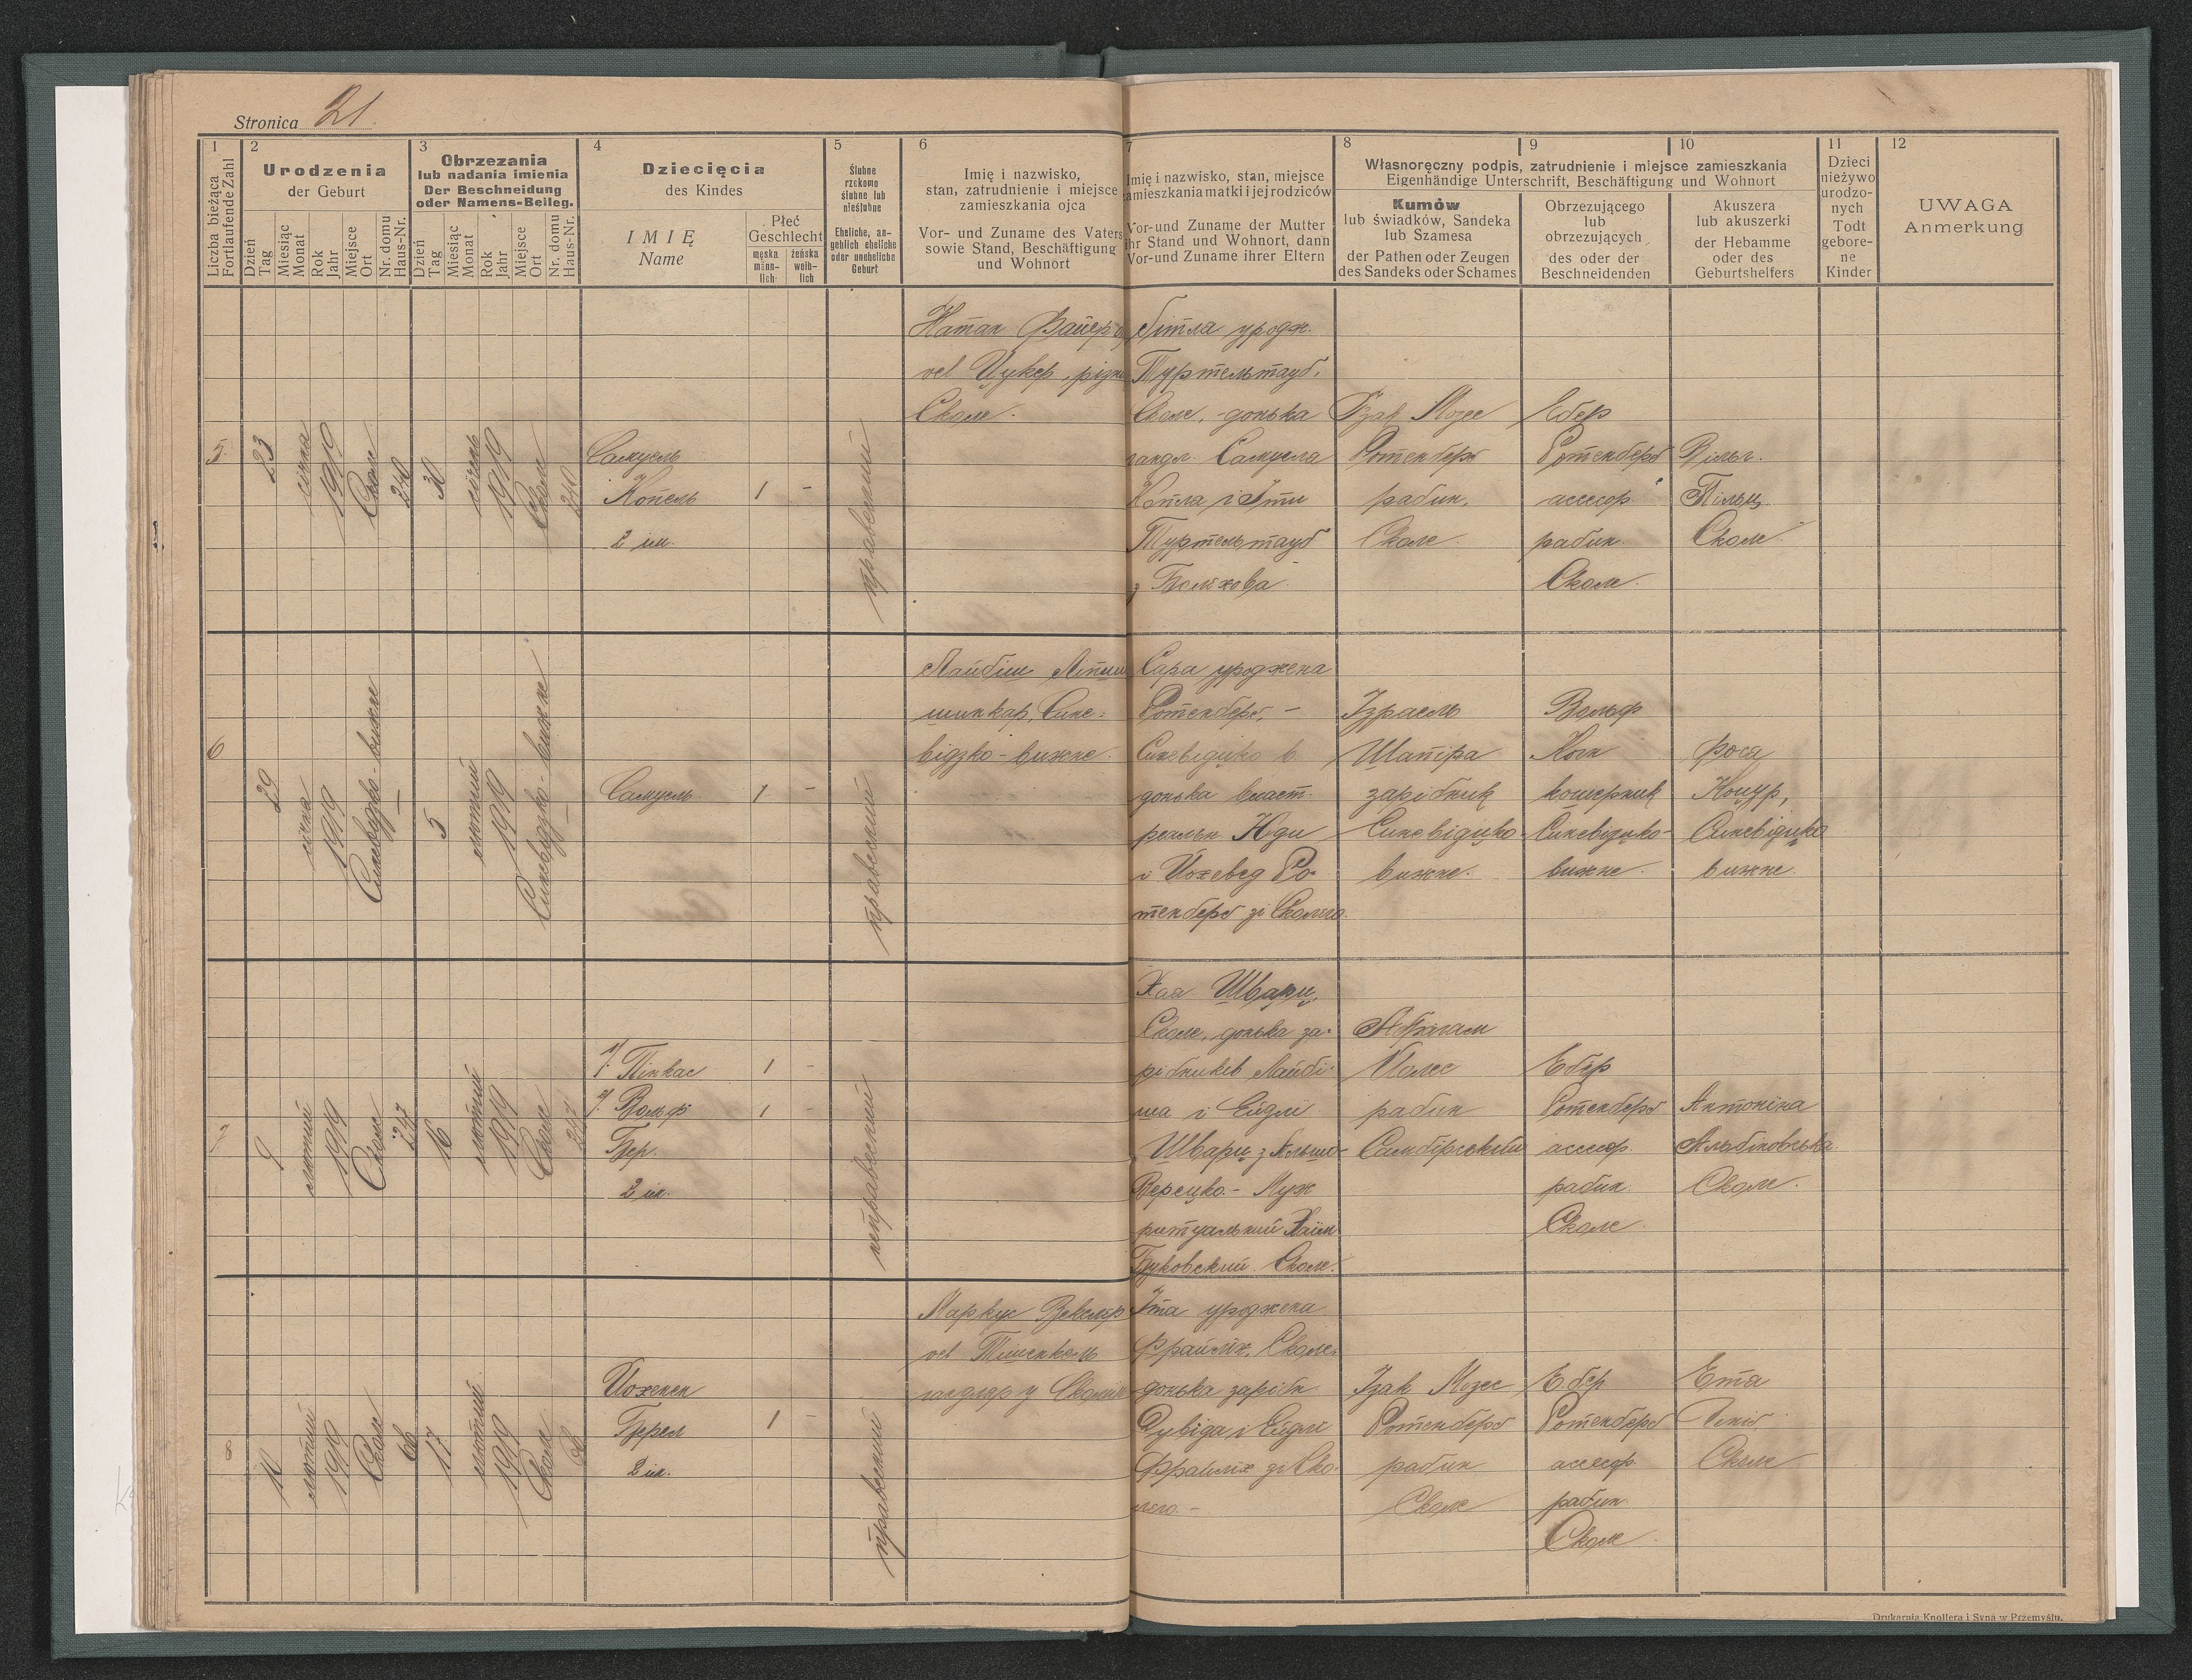 Stronica 21.
1
Liczba bieżąca
Fortlaufende Zahl
2
Urodzenia
der Geburt
Dzień
Tag
Miesiąc
Monat
Rok
Jahr
Miejsce
Ort
Nr. domu
Haus-Nr.
3
Obrzezania
lub nadania imienia
Der Beschneidung
oder Namens-Beileg.
Dzień
Tag
Miesiąc
Monat
Rok
Jahr
Miejsce
Ort
Nr. domu
Haus-Nr.
4
Dziecięcia
des Kindes
IMIĘ
Name
Płeć
Geschlecht
męska
männ-
lich
żeńska
weib-
lich
5
Ślubne
rzekomo
ślubne lub
nieślubne
Eheliche, an-
geblich eheliche
oder uneheliche
Geburt
6
Imię i nazwisko,
stan, zatrudnienie i miejsce
zamieszkania ojca
Vor- und Zuname des Vaters
sowie Stand, Beschäftigung
und Wohnort
7
Imię i nazwisko, stan, miejsce
zamieszkania matki i jej rodziców
Vor-und Zuname der Mutter
ihr Stand und Wohnort, dann
Vor-und Zuname ihrer Eltern
8
9
10
Własnoręczny podpis, zatrudnienie i miejsce zamieszkania
Eigenhändige Unterschrift, Beschäftigung und Wohnort
Kumów
lub świadków, Sandeka
lub Szamesa
der Pathen oder Zeugen
des Sandeks oder Schames
Obrzezującego
lub
obrzezujących
des oder der
Beschneidenden
Akuszera
lub akuszerki
der Hebamme
oder des
Geburtshelfers
11
Dzieci
nieżywo
urodzo-
nych
Todt
gebore-
ne
Kinder
12
UWAGA
Anmerkung
5.
23
січня
1919
Сколе
240
30
січня
1919
Сколе
240
Самуель
Копель
2 ім.
1 -
правесний
Натан
vel Цукер, різник
Сколе.
уродж.
Туртельтауб,
Сколе, - донька
гандл. Самуела
Туртельтауб
з Болехова
Ізак Мозес
Ротенберґ
рабин,
Сколе.
Ебер
Ротенберґ
асесор
рабин.
Сколе.
Сколе.
6
29
січня
1919
Синевідзко-вижне
5
лютий
1919
Синевідзко-вижне
Самуель
1 -
правесний
Лайбіш
шинкар, Сине-
відзко-вижне.
Сара уроджена
Ротенберґ, -
Синевідцко в
донька власт.
реальн. Юди
і Йохевед Ро-
тенберґ зі Сколього.
Ізраель
Шапіра
зарібник
Синевідцко-
вижне.
Вольф
кошерник
Синевідцко-
вижне.
Роса
Коцур,
Синевідцко
вижне.
7
9
лютий
1919
Сколе
247
16
лютий
1919
Сколе
247
1/. Пінкас 1 -
2/. Вольф 1 -
Бер.
2 ім.
неправесний
Хая Шварц,
Сколе, донька за-
рібників Лайбі-
ша і Ейдлі
Шварц з
Верецко. - Муж
ритуальний Хаім
Буковский. Сколе.
Абрагам
Йолес
рабин
Самбірський
Ебер
Ротенберґ
асесор.
рабин.
Сколе.
Антоніна
Сколе.
8
10
лютий
1919
Сколе
66
17
лютий
1919
Сколе
66
Йохенен
Берел
2 ім.
1 -
правесний
Маркус Векслер
vel
гандляр у
Іта уроджена
Фрайліх, Сколе,
донька зарібн.
Дувіда і Ейдлі
Фрайліх зі Ско-
лього. -
Ізак Мозес
Ротенберґ
рабин
Сколе
Ебер
Ротенберґ
асесор
рабин
Сколе.
Ета
Сколе
Drukarnia Knollera i Syna w Przemyślu.